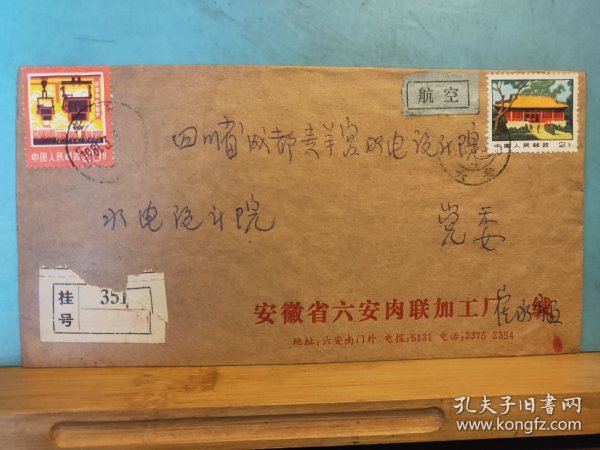 中国人民邮政
航空
中国人民邮政 2分
四川省成都青羊宫水电设计院
水电设计院 党委
挂号 351
安徽省六安肉联加工厂
地址:六安南门外 电报:5131 电话:2375 2354
孔夫子旧书网
www.kongfz.com